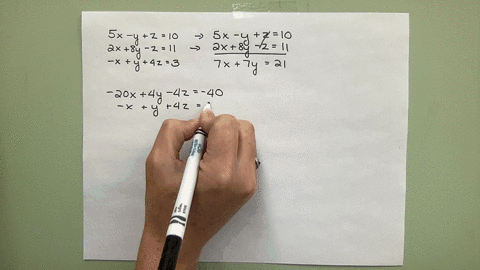 5x-y+z=10 → 5x-y+z=10
2x+8y-z=11 → 2x+8y-z=11
-x+y+4z=3 7x+7y=21
-20x+4y-4z=-40
-x+y+4z=